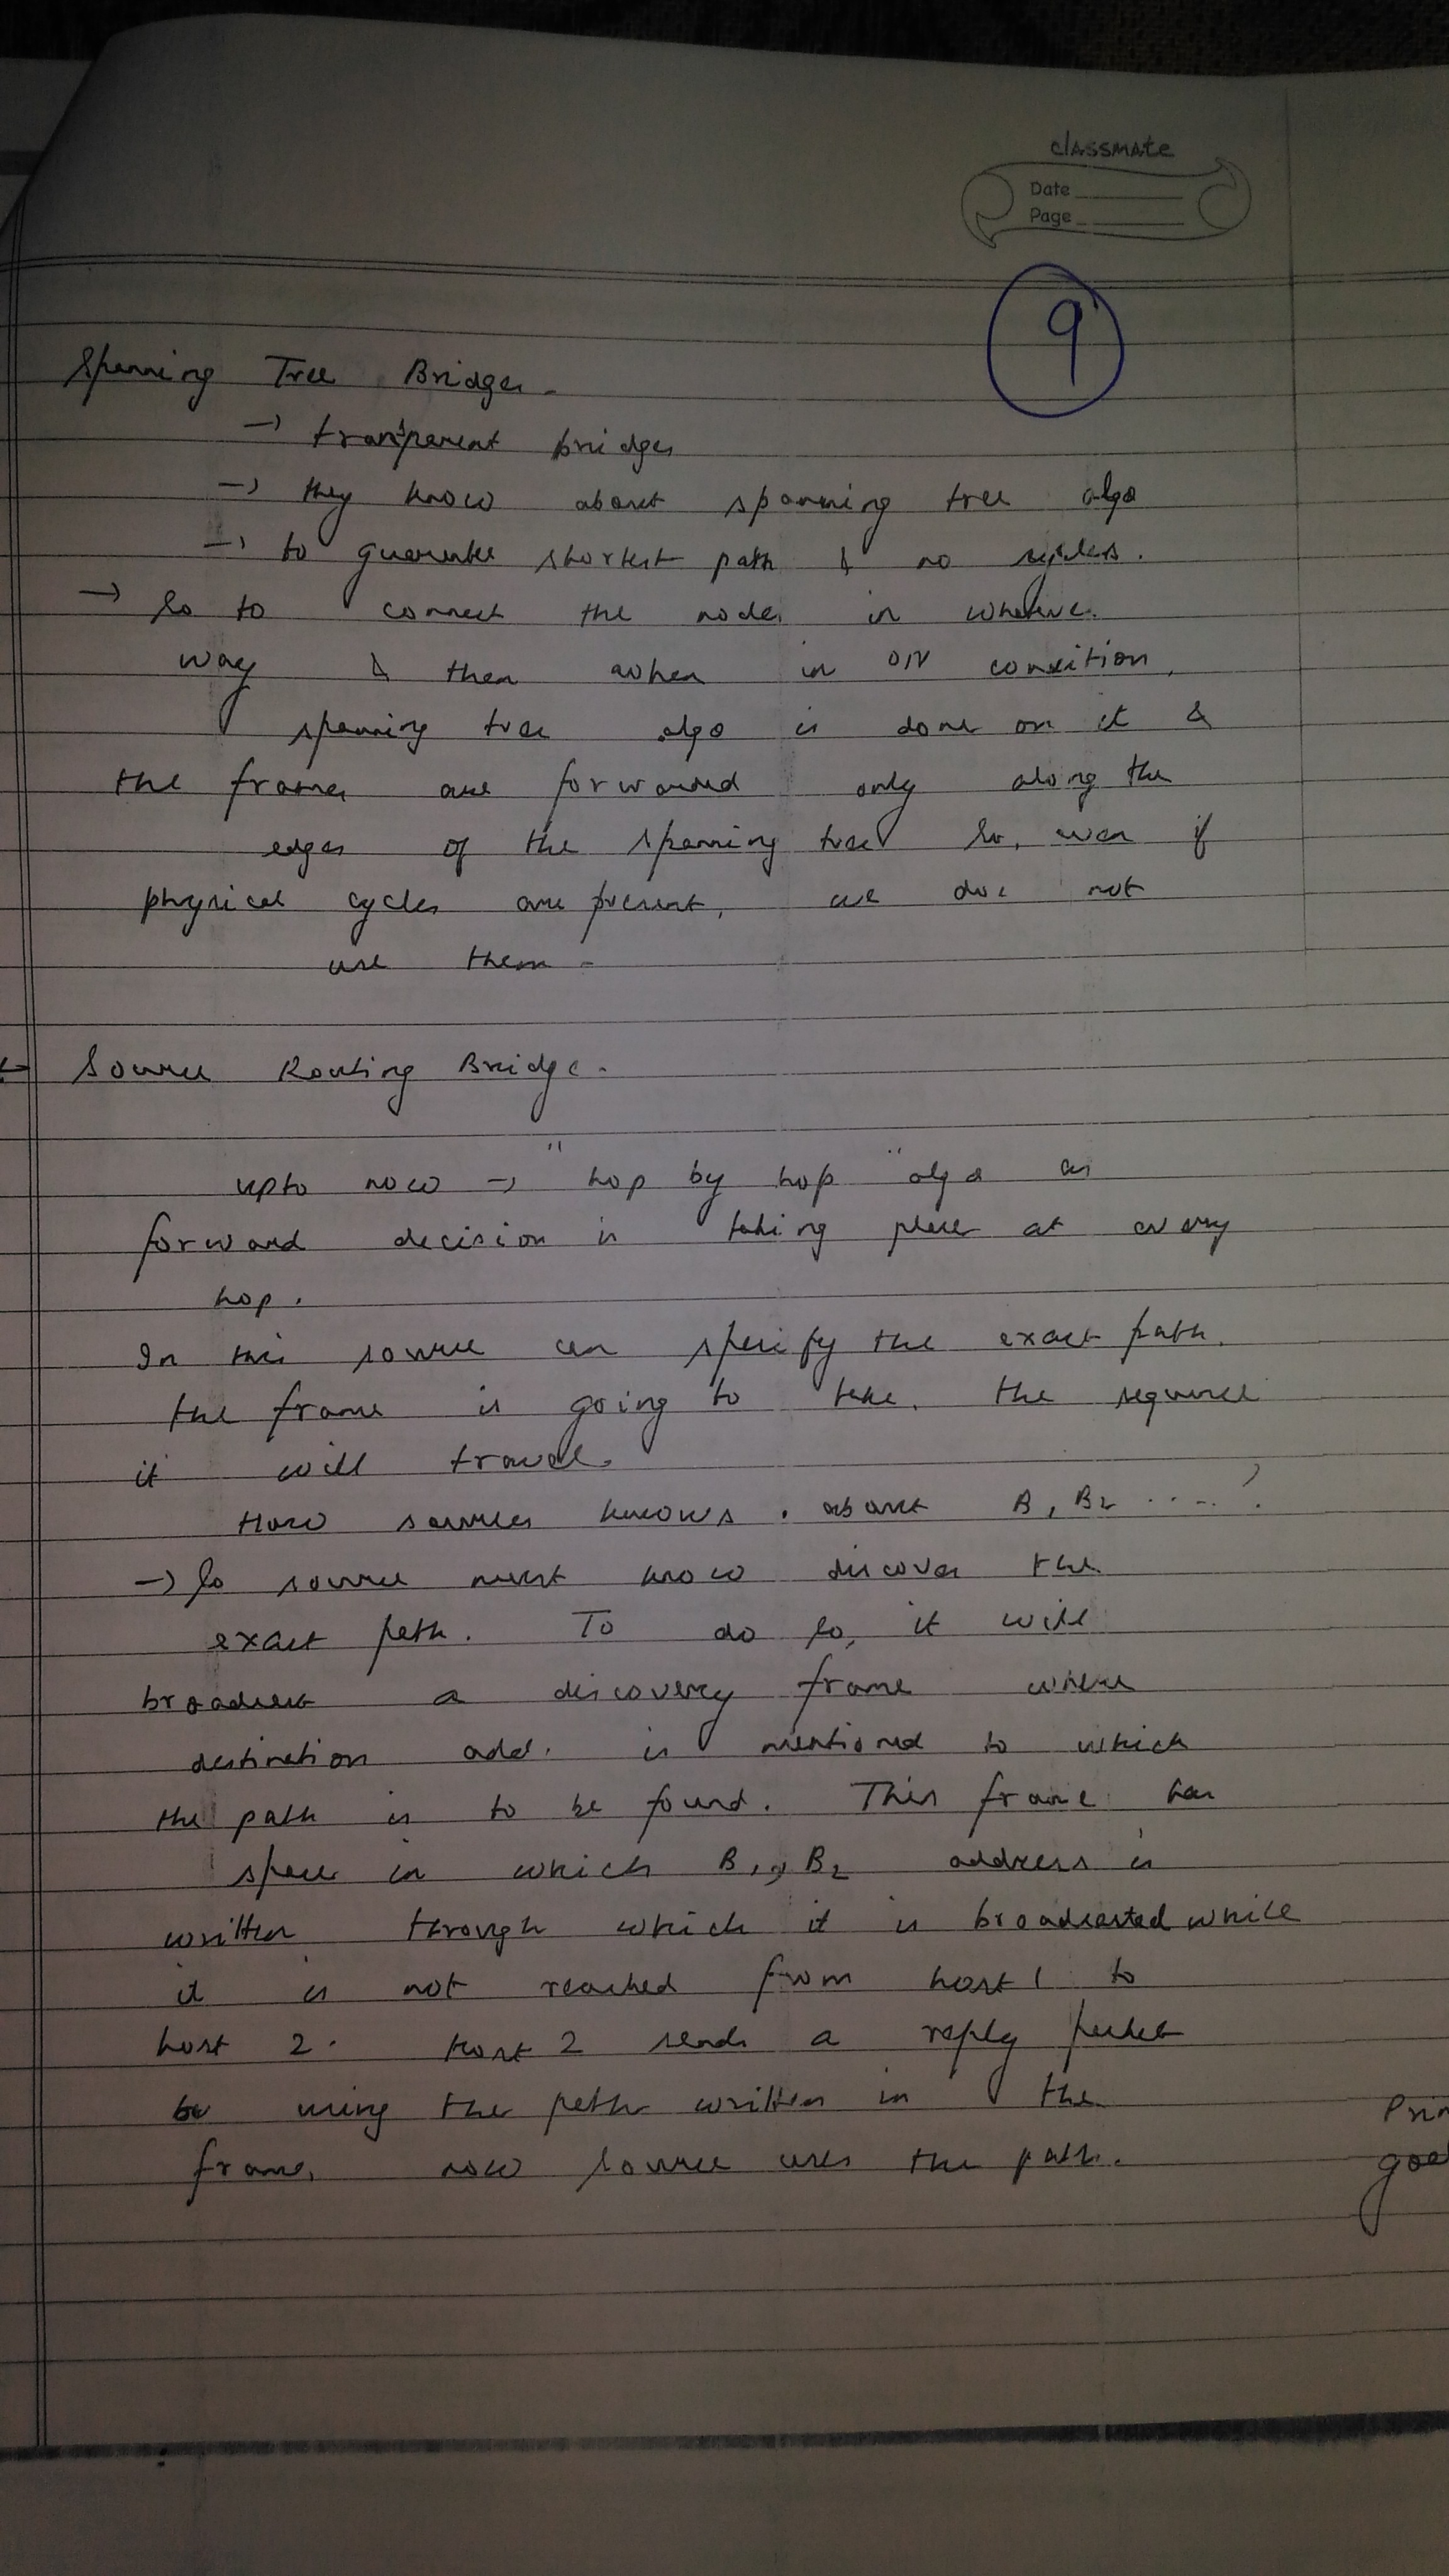 classmate
Date
Page
9
Spanning Tree Bridges
→ transparent bridges
→ they know about spanning tree algo
→ to guarantee shortest path & no cycles.
→ So to connect the nodes in whatever
way & then when in ON condition,
spanning tree algo is done on it &
the frames are forwarded only along the
edges of the spanning tree So, even if
physical cycles are present, we do not
use them
Source Routing Bridge.
upto now → "hop by hop" algo as
forward decision is taking place at every
hop.
In this source can specify the exact path
the frame is going to take, the sequence
it will travel.
How sources knows about B1 B2 ....?
→ So source must know discover the
exact path. To do so, it will
broadcast a discovery frame where
destination add. is mentioned to which
the path is to be found. This frame has
space in which B1, B2 address is
written through which it is broadcasted while
it is not reached from host 1 to
host 2. Host 2 sends a reply packet
using the path written in the
frame, now source uses the path.